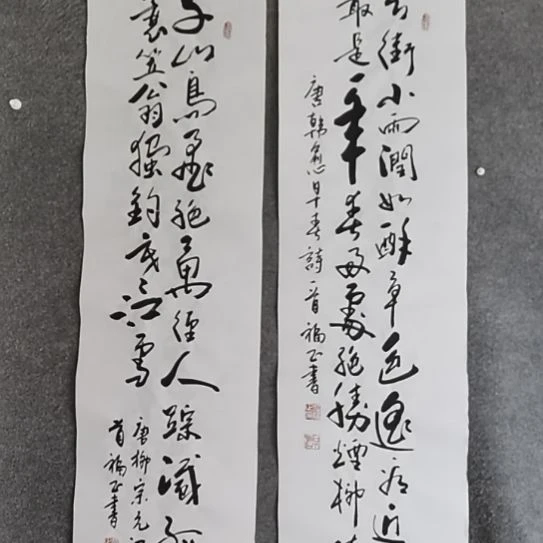 天街小雨潤如酥草色遙看近
最是一年春好處絕勝煙柳
唐韓愈早春詩一首福正書
千山鳥飛絕萬徑人踪滅孤
蓑笠翁獨釣寒江雪
唐柳宗元江
首福正書